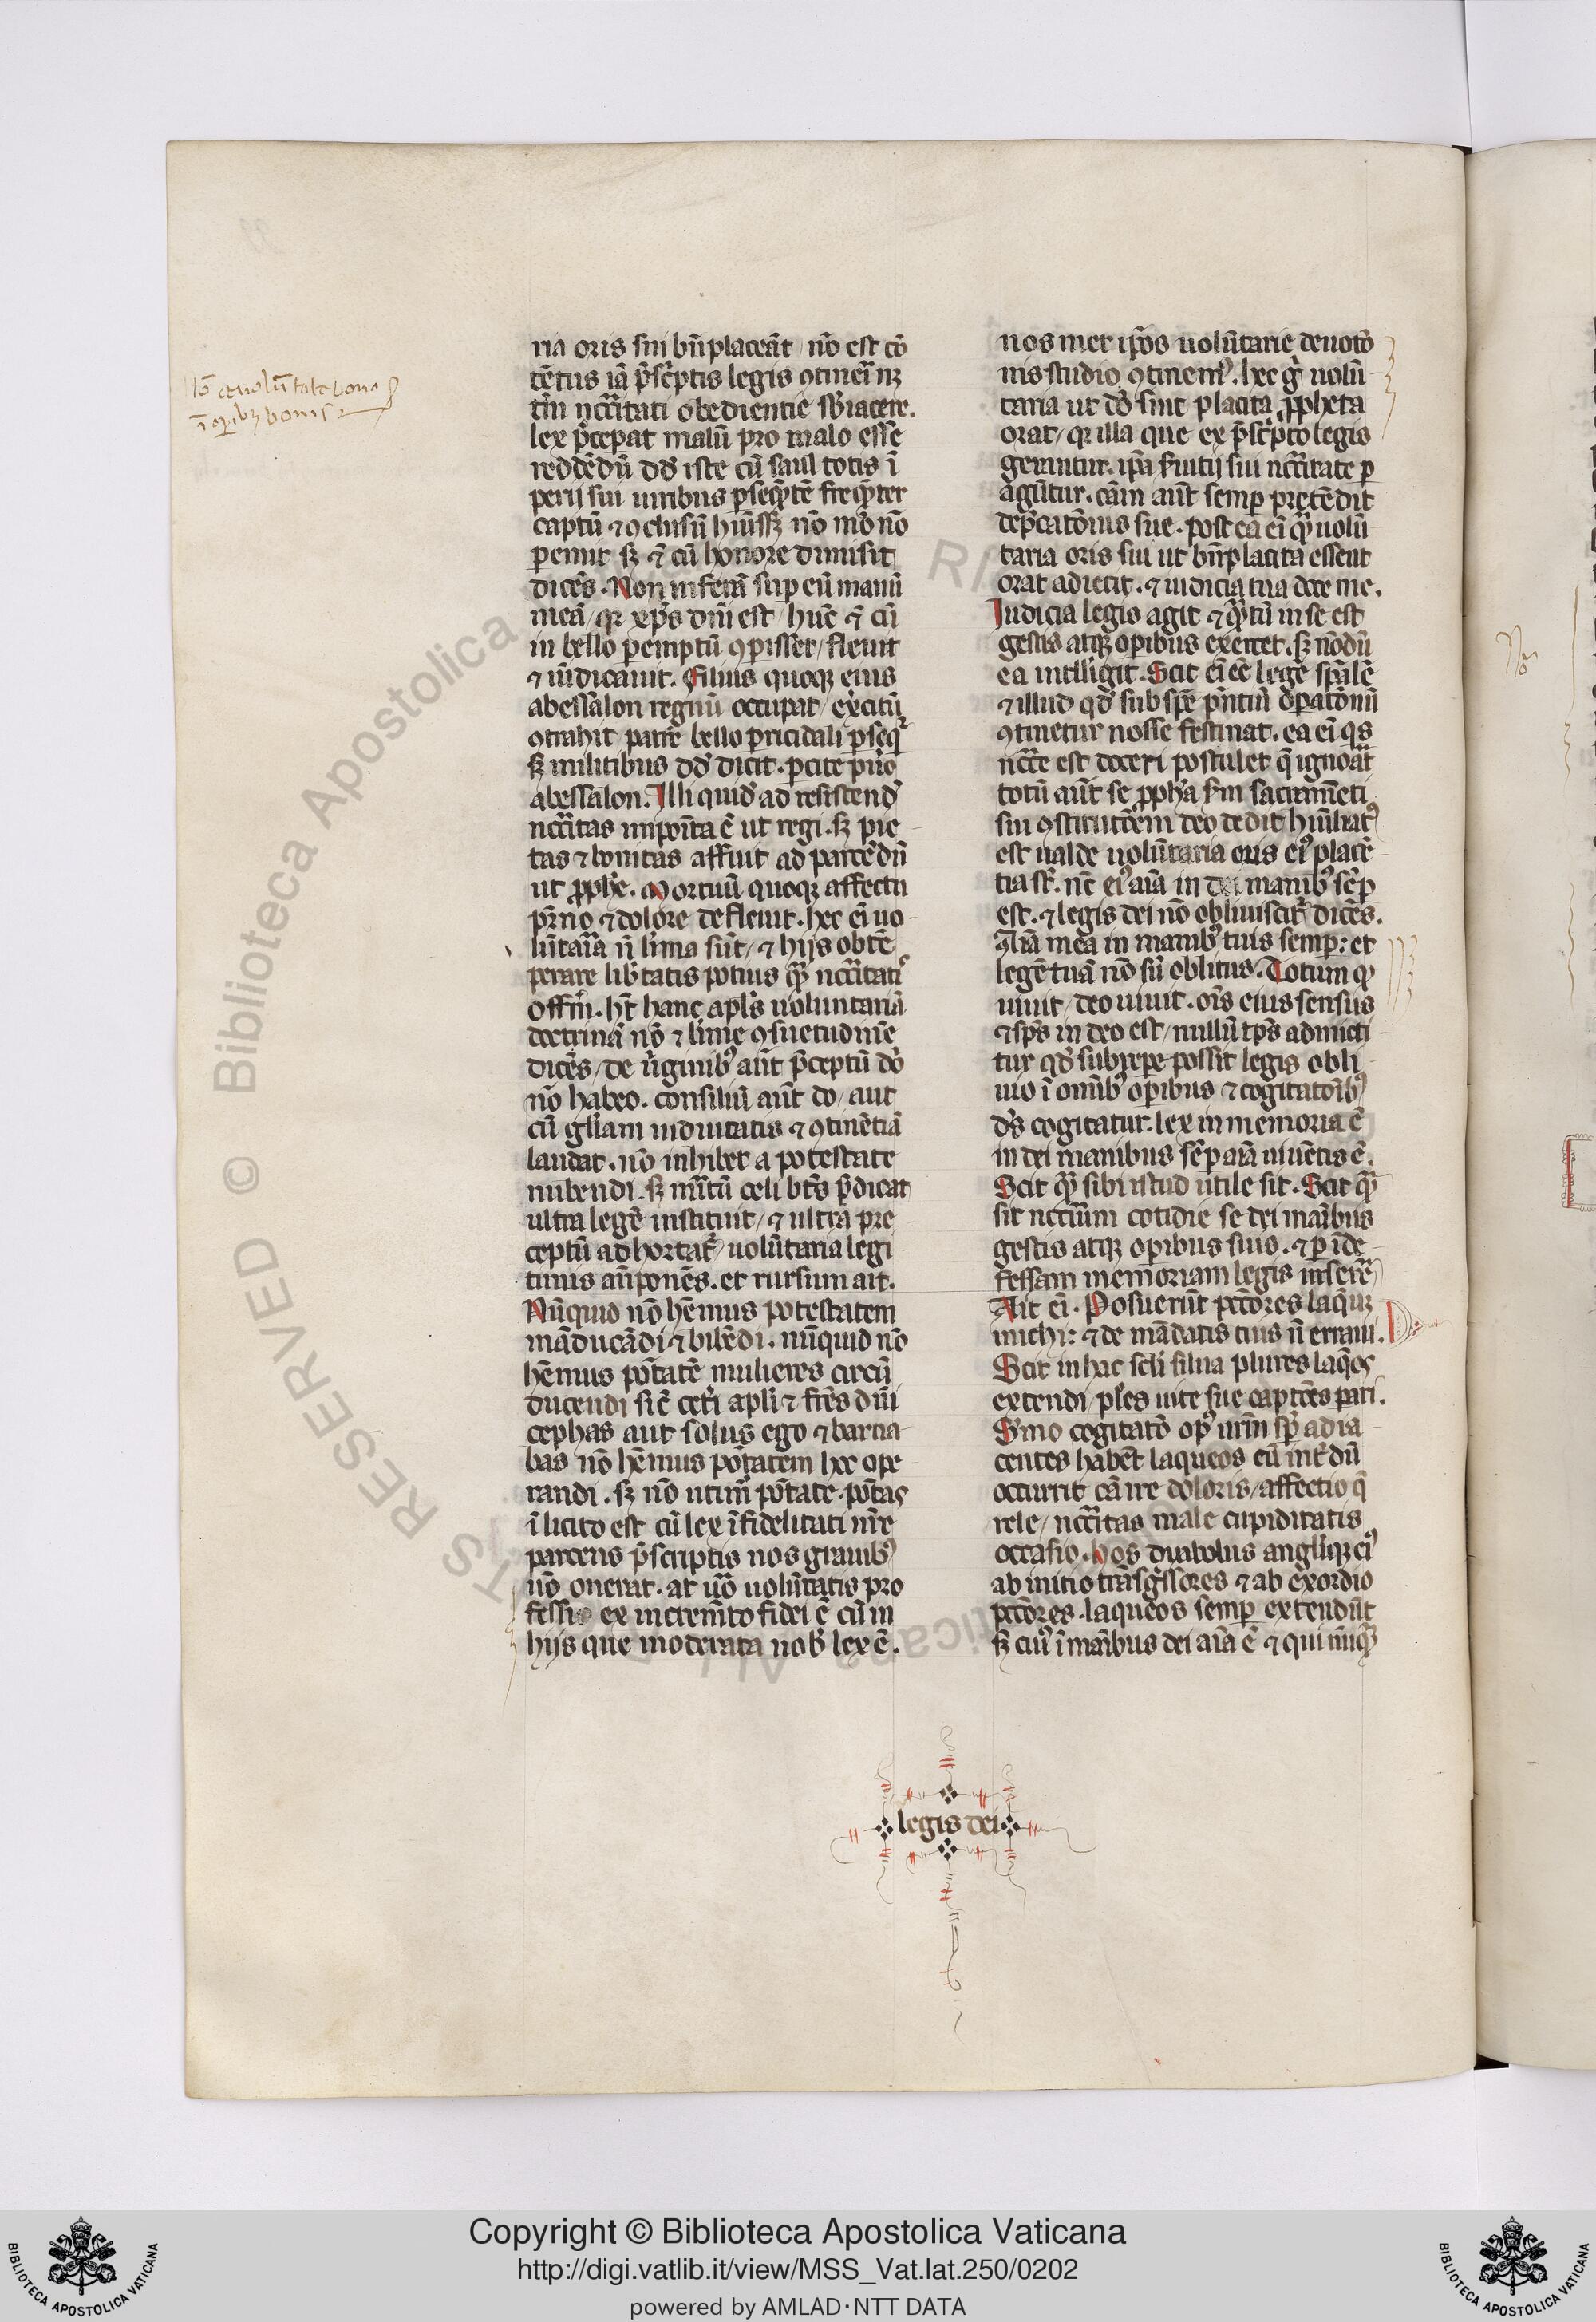 ria oris sui bn̄placeāt / nō est cō
tētus iā p̄sc̓ptis legis ꝯtineī nꝫ
tm̄ nccītati obedientie sb̓iacere.
lex p̄cepat malū pro malo esse
reddēdū dd̓ iste cū saul totis ī
perij sui uiribus ꝑseq̄ntē freq̄nter
captū ⁊ ꝯclusū hūisꝫ nō mō nō
ꝑemit sꝫ ⁊ cū honore dimisit
dicēs. Non inferā suꝑ eū manū
meā / qꝛ xp̄s dn̄i est / hūc ⁊ cū
in bello ꝑemptū ꝯperisset / fleuit
⁊ uīdicauit. Filius quoqꝫ eius
abessalon regnū occupat / exc̓itū
ꝯtrahit patrē bello ꝑricidali ꝑseqr̄
sꝫ militibus dd̓ dicit. ꝑcite pūo
abessalon. Illi quid̓ ad resistend̓
nccītas īmpoīta ē ut regi. sꝫ pie
tas ⁊ bonitas affuit ad parcēdū
ut ꝓphē. Mortuū quoqꝫ affectu
pr̄no ⁊ dolore defleuit. hec eī uo
lūtaīa n̄ līma sūt / ⁊ hijs obtē
perare lib̓tatis potius qͣꝫ nccītatꝭ
offm̄. hꝫ hanc apl̓s uoluntariā
doctrinā nō ⁊ lime ꝯsuetudīne
dicēs / de ūginibꝰ aūt p̄ceptū dō
nō habeo. consiliū aūt do / aut
cū gl̓iam uiduitatis ⁊ ꝯtinētiā
laudat. nō inhibet a potestate
nubendi. sꝫ mītū celi btīs p̄dicat
ultra legē instituit / ⁊ ultra pre
ceptū adhortat̄ / uolūtaria legi
timis an̄ponēs. et rursum ait.
Nūquid nō hēmus potestatem
māducādi ⁊ bibēdi. nūquid nō
hēmus pōtatē mulieres circū
ducendi sic̄ cet̓i apl̓i ⁊ fr̄es dn̄i
cephas aut solus ego ⁊ barna
bas nō hēmus pōtatem hec ope
randi. sꝫ nō utimr̄ pōtate. pōtas
ī licito est cū lex īfidelitati nr̄e
parcens p̄scriptis nos grauibꝰ
nō onerat. at uō uolūtatis pro
fessio ex incremīto fidei ē cū in
hijs que moderata nob̓ lex ē.
nos met ip̄os uolūtarie deuotō
nis studio ꝯtinemꝰ. hec gͦ uolū
taria ut dō sint placita ꝓpheta
orat / qꝛ illa que ex p̄sc̓pto legis
geruntur. ip̄a fruitij sui nccītate ꝑ
agūtur. cām aūt semꝑ pretēdit
dep̄catōnis sue. post ea eī qͣ uolū
taria oris sui ut bn̄placita essent
orat adiecit. ⁊ iudicia tua doce me.
Iudicia legis agit ⁊ qͣꝫtū in se est
gestis atqꝫ oꝑibus exercet. sꝫ nōdū
ea intelligit. Scit eī eē legē spālē
⁊ illud qd̓ sub spē p̄ntiū oꝑatōnū
ꝯtinetur nosse festinat. ea eī qs
nccē est doceri postulet q̄ ignoāt
totū aūt se ꝓphā fm sacram̄eti
sui ꝯstitutōem deo dedit hūiliatꝰ
est ualde uolūtaria oris eiꝰ placē
tia st̄. nc̄ eiꝰ aīa in dei manibꝰ sēꝑ
est. ⁊ legis dei nō obliuiscit̄ dicēs.
Aīa mea in manibꝰ tuis semper: et
legē tuā nō sū oblitus. Totum qͦ
uiuit / deo uiuit. oīs eius sensus
⁊ sp̄s in deo est / nullū tp̄s admicti
tur qd̓ subrepe possit legis obli
uio ī omībꝰ oꝑibus ⁊ cogitatōibꝰ
dꝰs cogitatur. lex in memoria ē
in dei manibus sēꝑ aīa uiuētis ē.
Scit qͣꝫ sibi istud utile sit. Scit qͣꝫ
sit nccīum cotidie se dei maībus
gestis atqꝫ oꝑibus suis. ⁊ ꝑ īde
fessam memoriam legis inserē
Ait eī. Posuerūt pctōres laq̄uꝫ
michi: ⁊ de mādatis tuis n̄ erraui.
Scit in hac sc̄li silua plures laq̄os
extendi / pl̓es uite sue captōes pati.
Oīno cogitatō opꝰ nr̄m sꝑ adia
centes habēt laqueos cū int̓dū
occurrit cā ire doloris / affectio q̄
rele / nccītas male cupiditatis
occasio. hos dyabolus anglīqꝫ eiꝰ
ab initio trāsgssores ⁊ ab exordio
pctōres. laqueos semꝑ extendūt
sꝫ cuiꝰ ī maībus dei aīa ē ⁊ qui nūqͣꝫ
legis dei
Copyright © Biblioteca Apostolica Vaticana
http://digi.vatlib.it/view/MSS_Vat.lat.250/0202
powered by AMLAD·NTT DATA
BIBLIOTECA APOSTOLICA VATICANA
BIBLIOTECA APOSTOLICA VATICANA